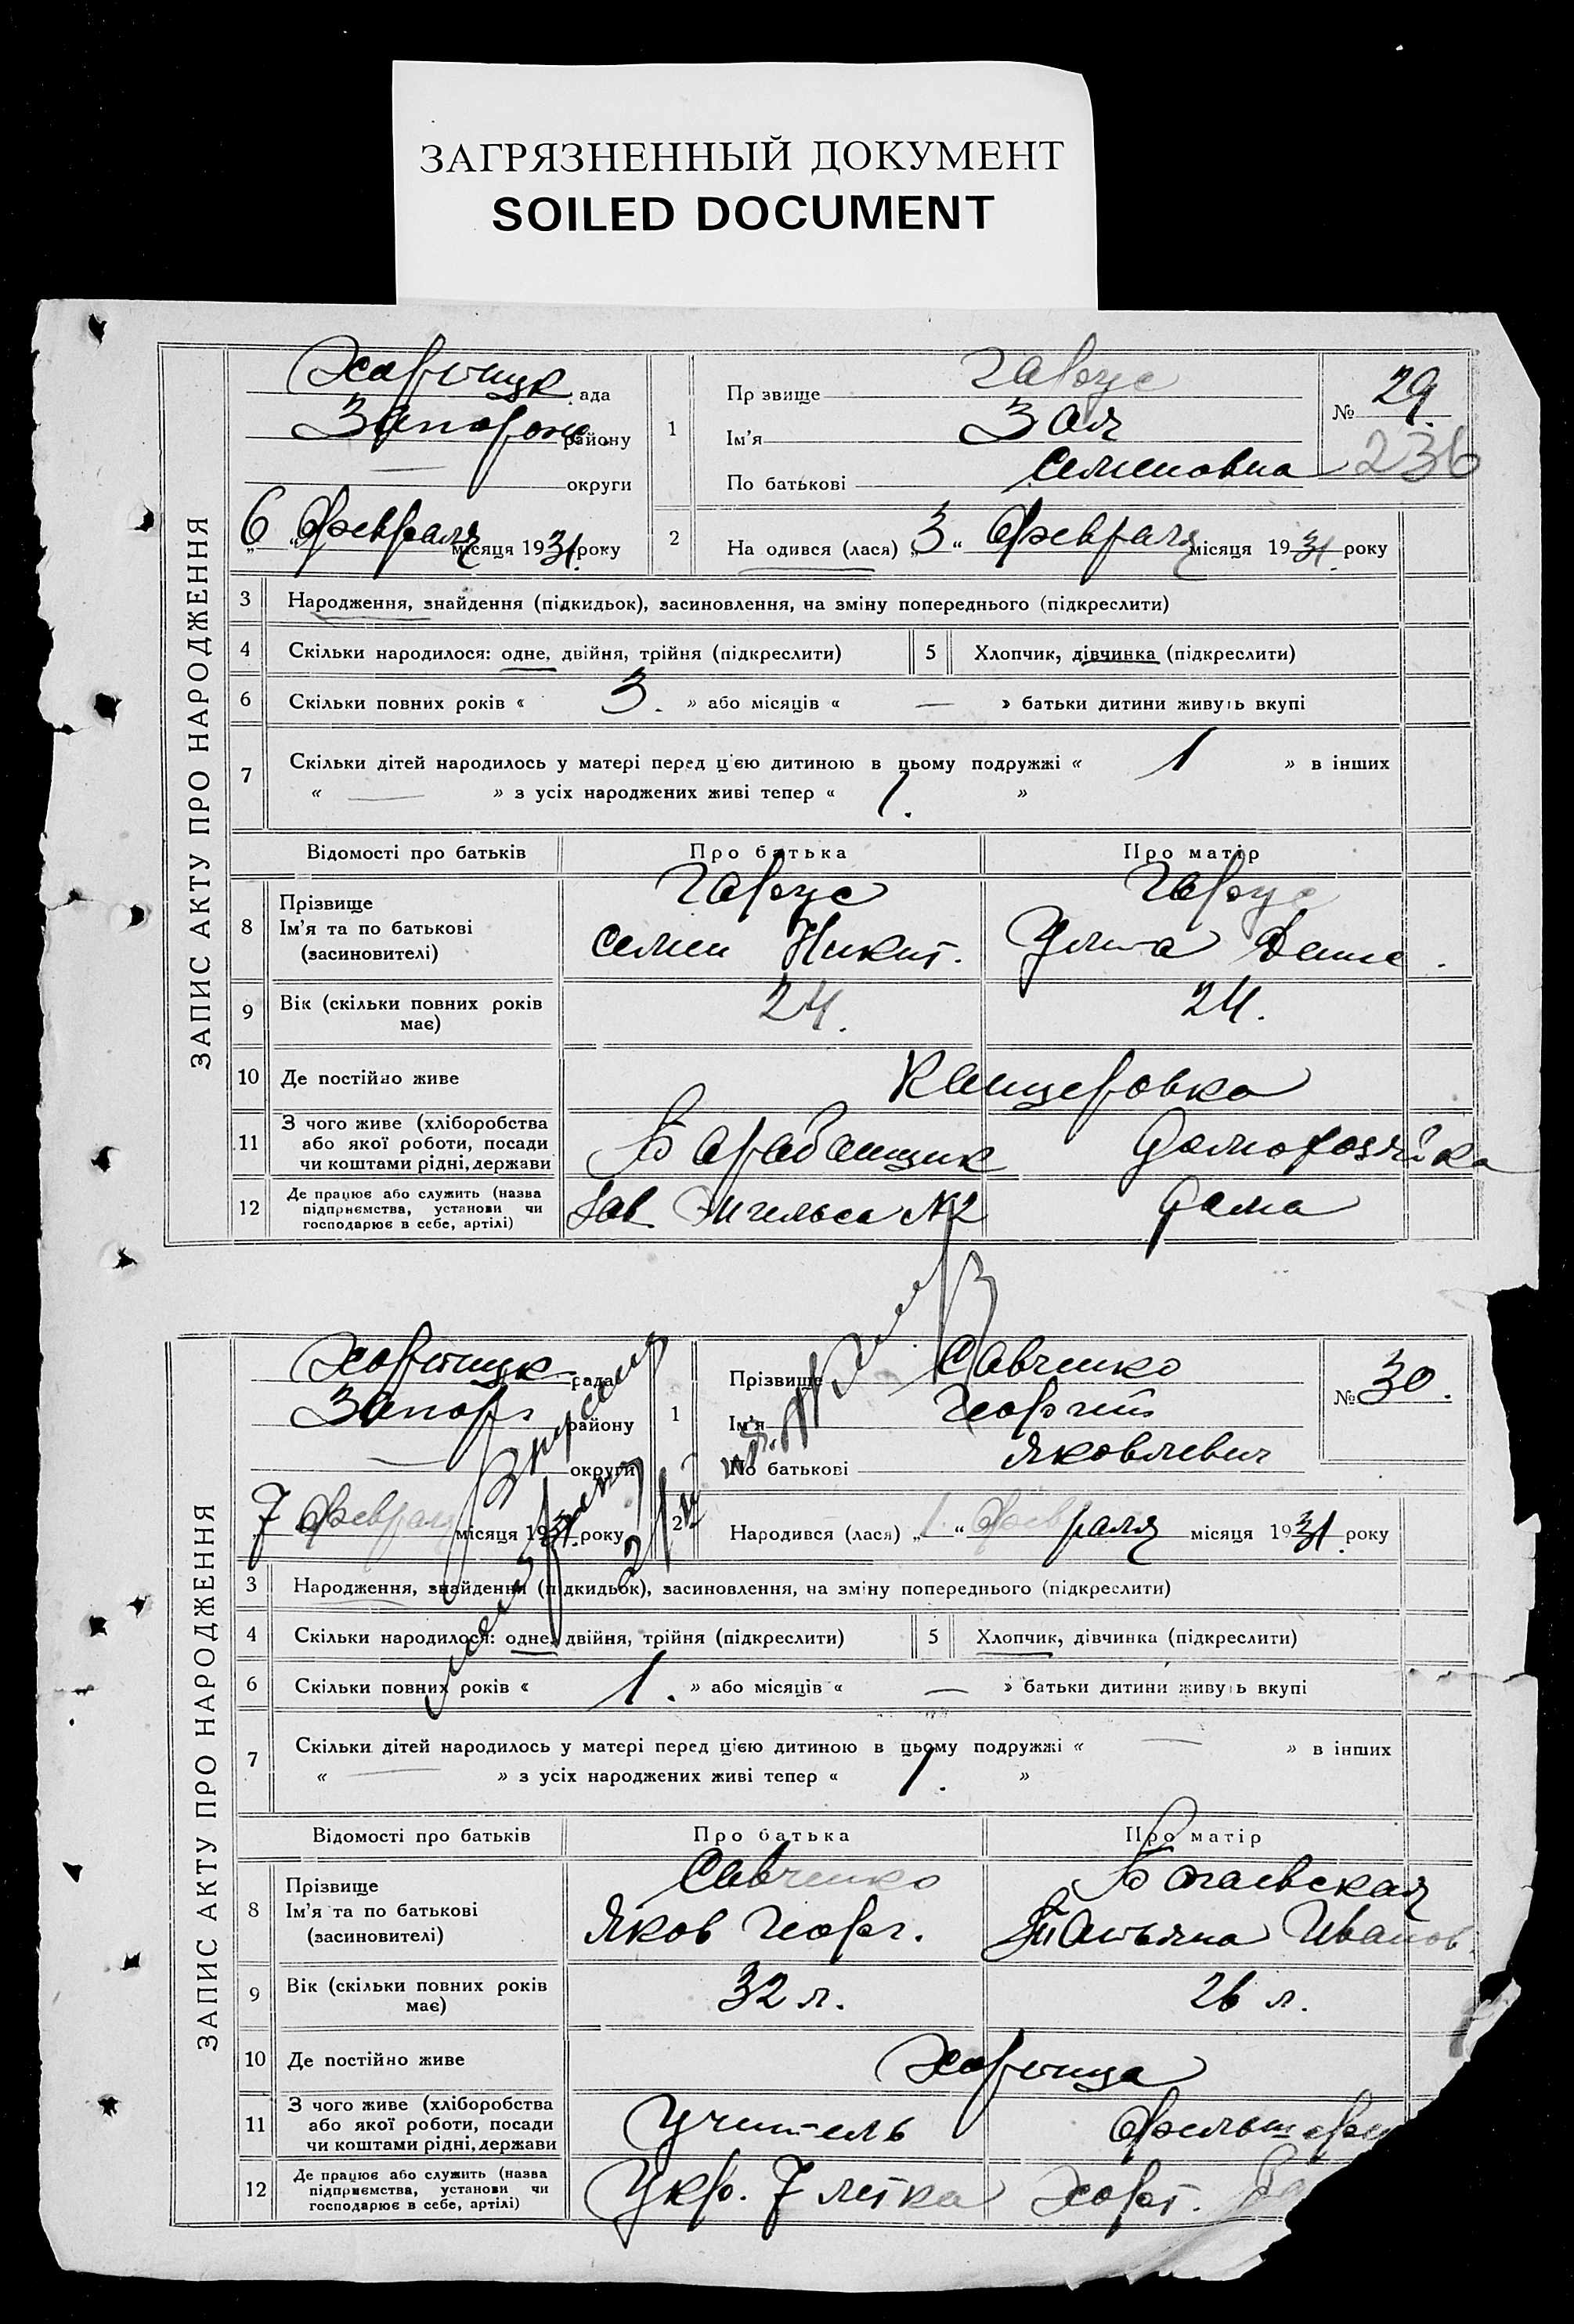 ЗАГРЯЗНЕННЫЙ ДОКУМЕНТ
SOILED DOCUMENT
ЗАПИС АКТУ ПРО НАРОДЖЕННЯ
Хортицк ада
Запорож району
— округи
6 „ Февраля місяця 1931. року
1
Пр звище Гарус
Ім’я Зоя
По батькові Семеновна
№ 29
236
2
На одився (лася) „3“ Февраля місяця 1931. року
3 Народження, знайдення (підкидьок), засиновлення, на зміну попереднього (підкреслити)
4 Скільки народилося: одне, двійня, трійня (підкреслити) 5 Хлопчик, дівчинка (підкреслити)
6 Скільки повних років « 3. » або місяців « — » батьки дитини живуть вкупі
7 Скільки дітей народилось у матері перед цією дитиною в цьому подружжі « 1 » в інших
« — » з усіх народжених живі тепер « 1. »
Відомості про батьків Про батька Про матір
8 Прізвище Ім’я та по батькові (засиновителі)
Гарус Гарус
Семен Никит. Денис.
9 Вік (скільки повних років має) 24. 24.
10 Де постійно живе Канцеровка
11 З чого живе (хліборобства або якої роботи, посади чи коштами рідні, держави Барабанщик Домохозяйка
12 Де працює або служить (назва підприємства, установи чи господарює в себе, артілі) Зав Энгельса №2 Дома
ЗАПИС АКТУ ПРО НАРОДЖЕННЯ
Хортицк. рада
Запор. району
— округи
7 Февраля місяця 1931. року
1
Прізвище Савченко
Ім’я Георгий
По батькові Яковлевич
№ 30.
2
Народився (лася) „1.“ Февраля місяця 1931. року
3 Народження, знайдення (підкидьок), засиновлення, на зміну попереднього (підкреслити)
4 Скільки народилося: одне, двійня, трійня (підкреслити) 5 Хлопчик, дівчинка (підкреслити)
6 Скільки повних років « 1. » або місяців « — » батьки дитини живуть вкупі
7 Скільки дітей народилось у матері перед цією дитиною в цьому подружжі « — » в інших
« — » з усіх народжених живі тепер « 1. »
Відомості про батьків Про батька Про матір
8 Прізвище Ім’я та по батькові (засиновителі)
Савченко
Яков Георг. Татьяна Иванов.
9 Вік (скільки повних років має) 32 л. 26 л.
10 Де постійно живе Хортица
11 З чого живе (хліборобства або якої роботи, посади чи коштами рідні, держави Учитель
12 Де працює або служить (назва підприємства, установи чи господарює в себе, артілі) Укр. 7 летка Хорт.